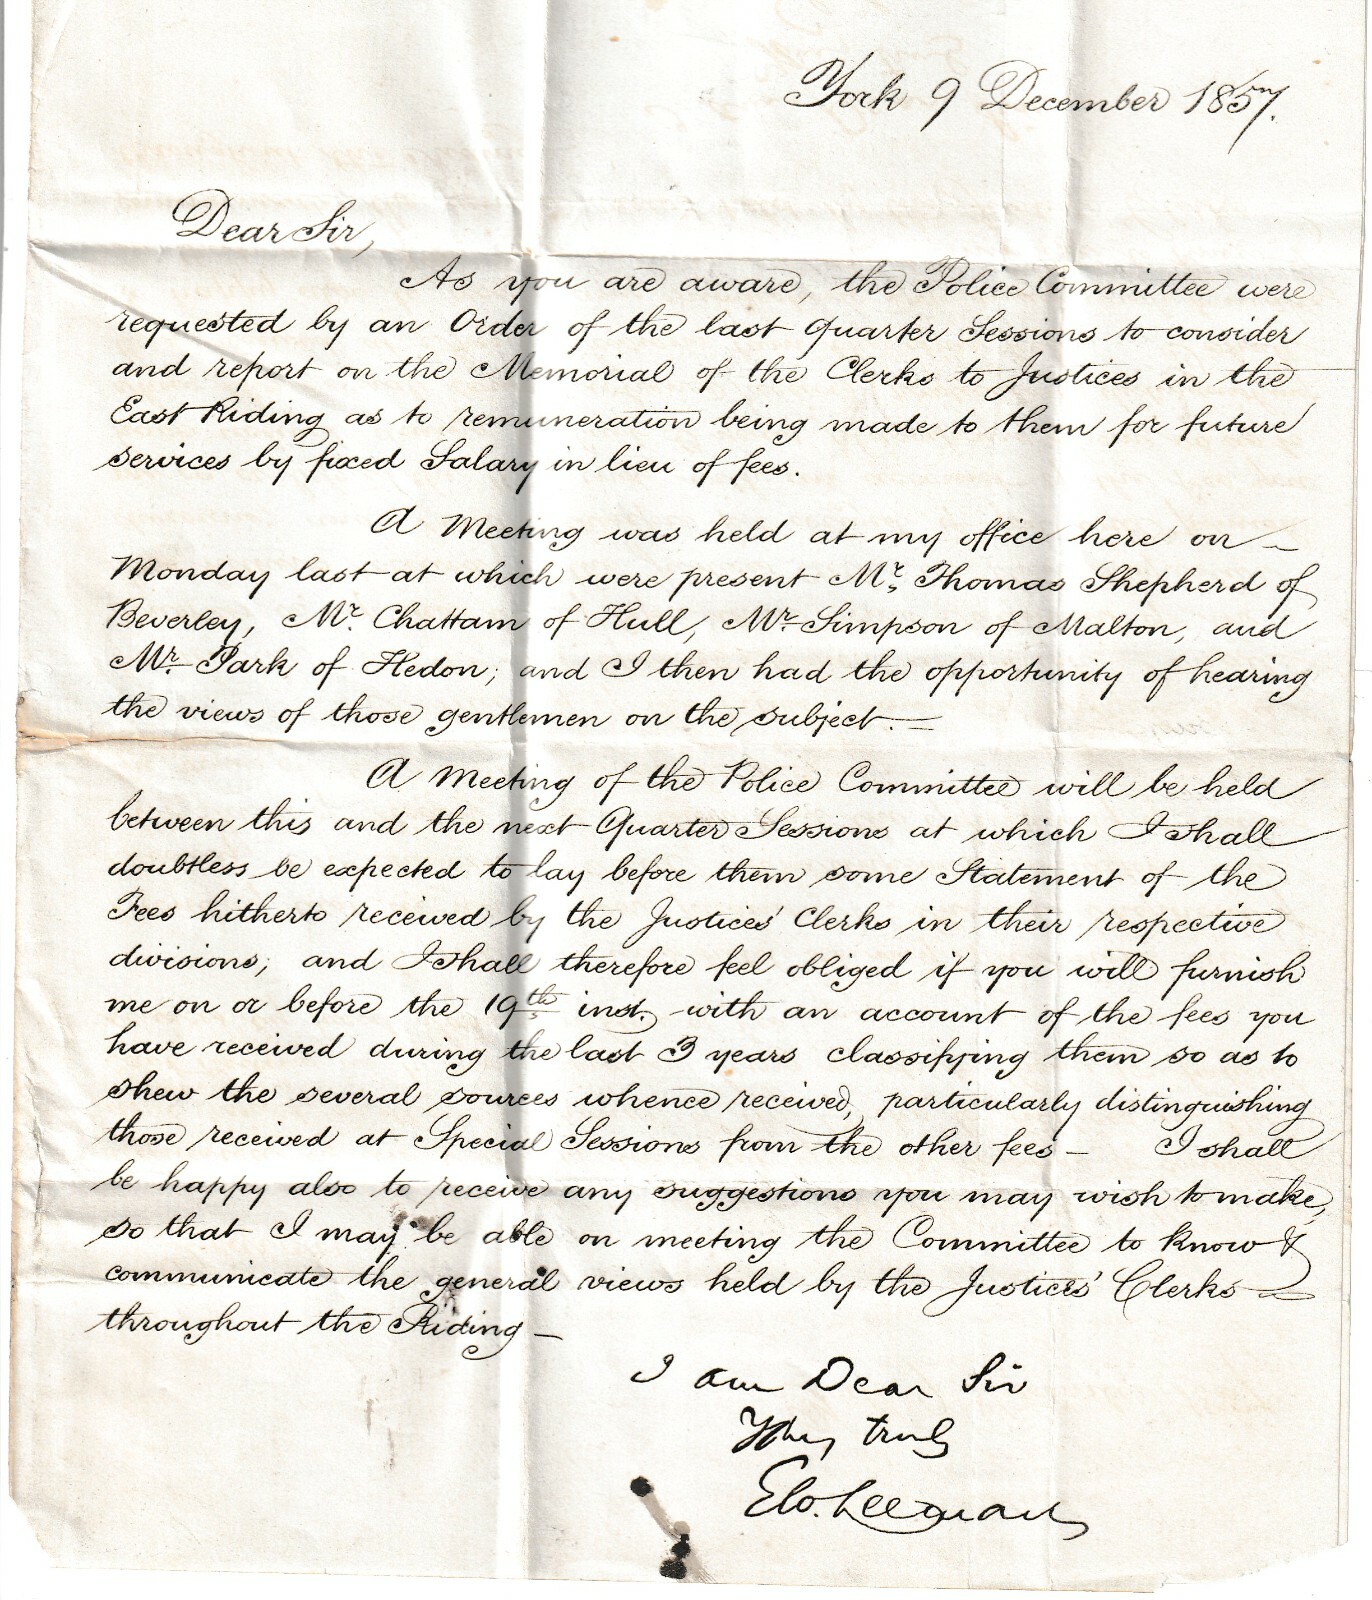 York 9 December 1857.
Dear Sir,
As you are aware, the Police Committee were
requested by an Order of the last Quarter Sessions to consider
and report on the Memorial of the Clerks to Justices in the
East Riding as to remuneration being made to them for future
services by fixed Salary in lieu of fees.
A Meeting was held at my office here on –
Monday last at which were present Mr. Thomas Shepherd of
Beverley, Mr. Chattam of Hull, Mr. Simpson of Malton, and
Mr. Park of Hedon; and I then had the opportunity of hearing
the views of those gentlemen on the subject. –
A Meeting of the Police Committee will be held
between this and the next Quarter Sessions at which I shall
doubtless be expected to lay before them some Statement of the
Fees hitherto received by the Justices' Clerks in their respective
divisions; and I shall therefore feel obliged if you will furnish
me on or before the 19th inst. with an account of the fees you
have received during the last 3 years classifying them so as to
shew the several sources whence received, particularly distinguishing
those received at Special Sessions from the other fees – I shall
be happy also to receive any suggestions you may wish to make,
so that I may be able on meeting the Committee to know &
communicate the general views held by the Justices' Clerks –
throughout the Riding –
I am Dear Sir
truly
Leeman